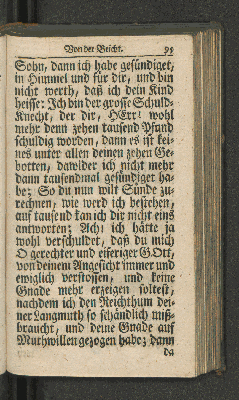 Von der Beicht. 95
Sohn, dann ich habe gesündiget,
in Himmel und für dir, und bin
nicht werth, daß ich dein Kind
heisse: Ich bin der grosse Schuld-
Knecht, der dir, HErr! wohl
mehr denn zehen tausend Pfund
schuldig worden, dann es ist kei-
nes unter allen deinen zehen Ge-
botten, dawider ich nicht mehr
dann tausendmal gesündiget ha-
be; So du nun wilt Sünde zu-
rechnen, wie werd ich bestehen,
auf tausend kan ich dir nicht eins
antworten; Ach! ich hätte ja
wohl verschuldet, daß du mich
O gerechter und eiferiger GOtt,
von deinem Angesicht immer und
ewiglich verstossen, und keine
Gnade mehr erzeigen soltest,
nachdem ich den Reichthum dei-
ner Langmuth so schändlich miß-
braucht, und deine Gnade auf
Muthwillen gezogen habe; dann
da